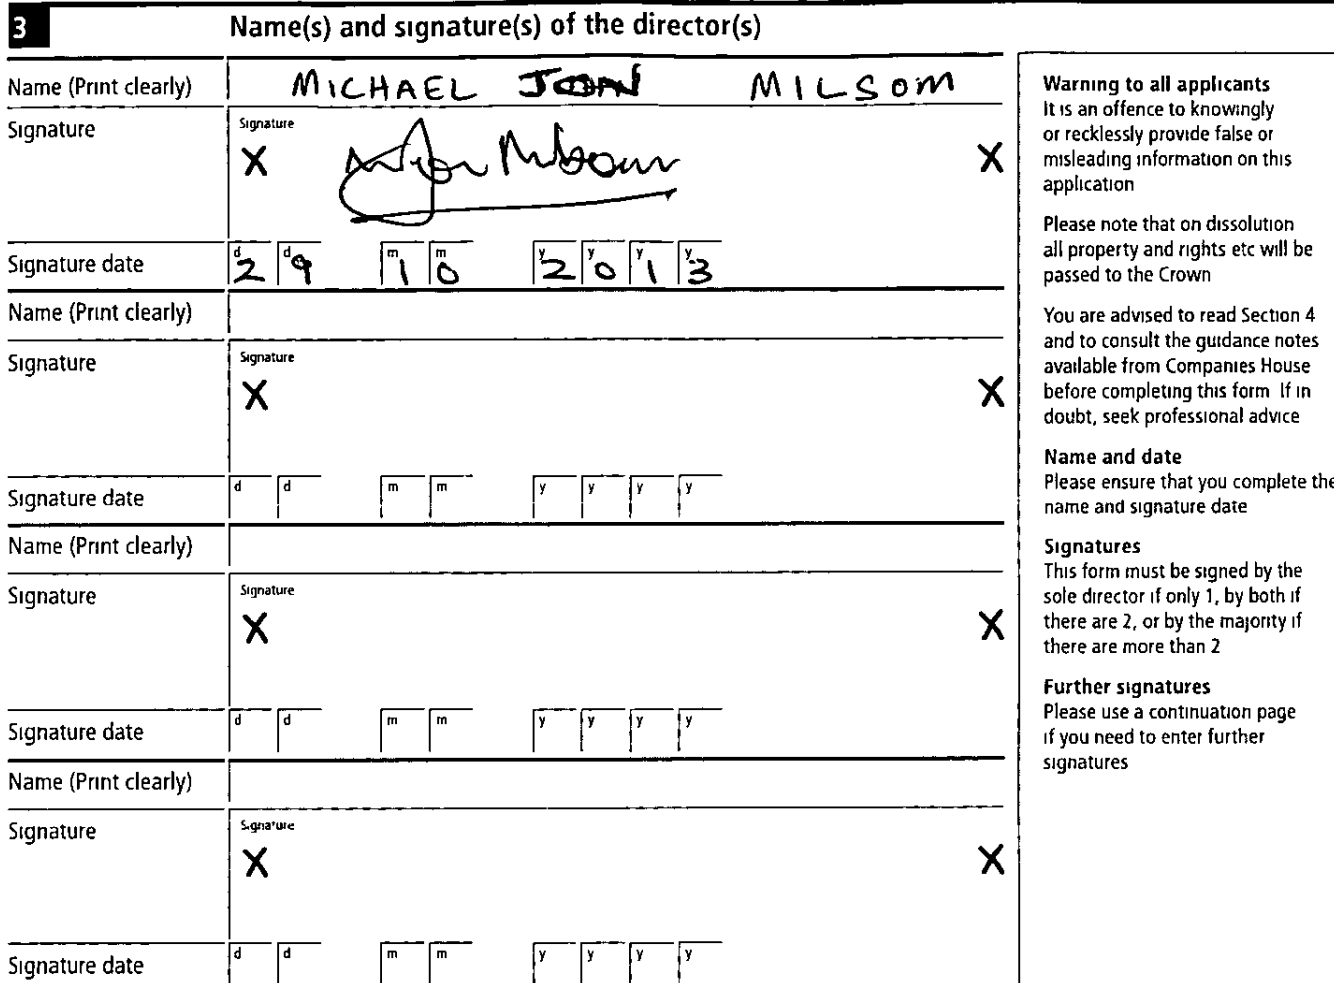 3 Name(s) and signature(s) of the director(s)
Name (Print clearly) MICHAEL MILSOM
Signature Signature
X X
Signature date d2 d9 m1 m0 y2 y0 y1 y3
Name (Print clearly)
Signature Signature
X X
Signature date d d m m y y y y
Name (Print clearly)
Signature Signature
X X
Signature date d d m m y y y y
Name (Print clearly)
Signature Signature
X X
Signature date d d m m y y y y
Warning to all applicants
It is an offence to knowingly
or recklessly provide false or
misleading information on this
application
Please note that on dissolution
all property and rights etc will be
passed to the Crown
You are advised to read Section 4
and to consult the guidance notes
available from Companies House
before completing this form If in
doubt, seek professional advice
Name and date
Please ensure that you complete the
name and signature date
Signatures
This form must be signed by the
sole director if only 1, by both if
there are 2, or by the majority if
there are more than 2
Further signatures
Please use a continuation page
if you need to enter further
signatures